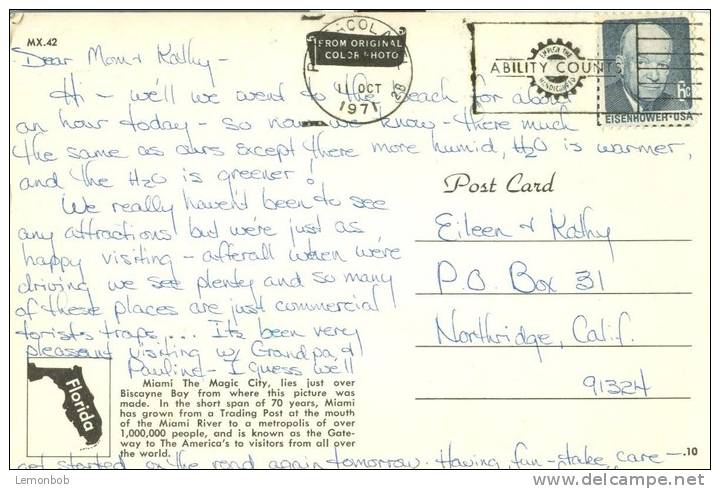 MX.42
Dear Mom & Kathy -
Hi - we'll we went to the beach for about
an hour today - so now we know - there much
the same as ours except there more humid, H2O is warmer,
and the H2O is greener!
We really haven't been to see
any attractions but we're just as
happy visiting - afterall when we're
driving we see plenty and so many
of these places are just commercial
torists traps... Its been very
pleasant visiting w/ Grandpa &
Pauline - I guess well
get started on the road again tomorrow. Having fun - take care -
FROM ORIGINAL
COLOR PHOTO
OCT
28
1971
ABILITY COUNTS
EMPLOY THE
HANDICAPPED
6c
EISENHOWER·USA
Post Card
Eileen & Kathy
P.O. Box 31
Northridge, Calif.
91324
Florida
Miami The Magic City, lies just over
Biscayne Bay from where this picture was
made. In the short span of 70 years, Miami
has grown from a Trading Post at the mouth
of the Miami River to a metropolis of over
1,000,000 people, and is known as the Gate-
way to The America's to visitors from all over
the world.
.10
Lemonbob
delcampe.net